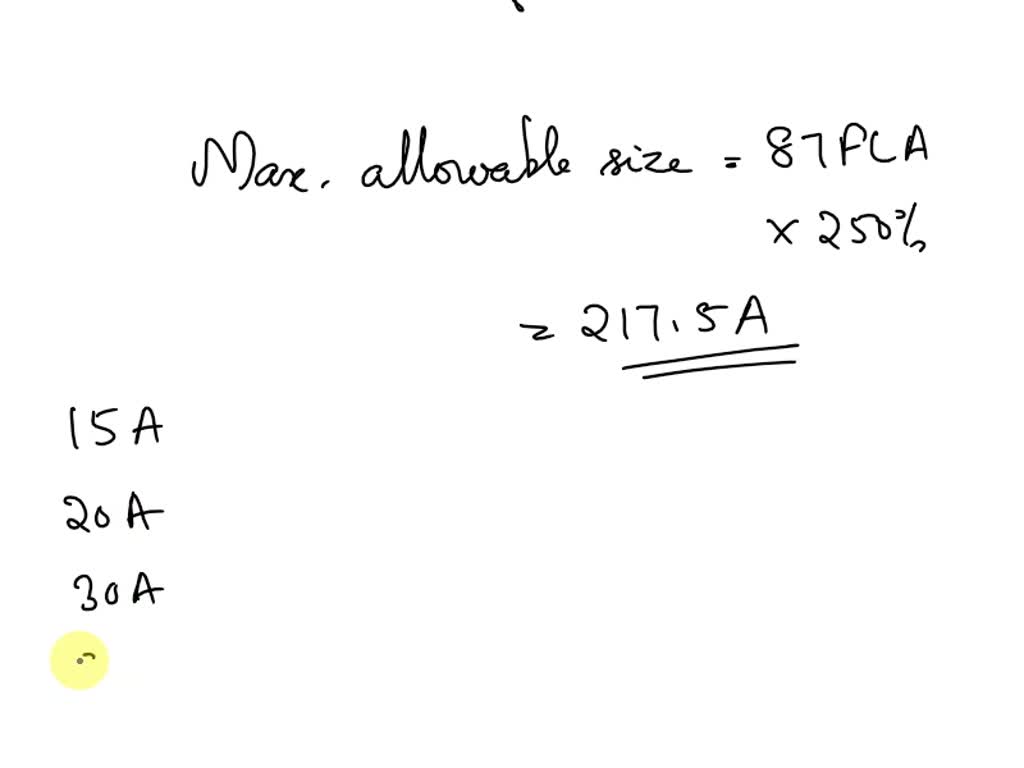 Max. allowable size = 87 FLA
x 250%
= 217.5 A
15 A
20 A
30 A